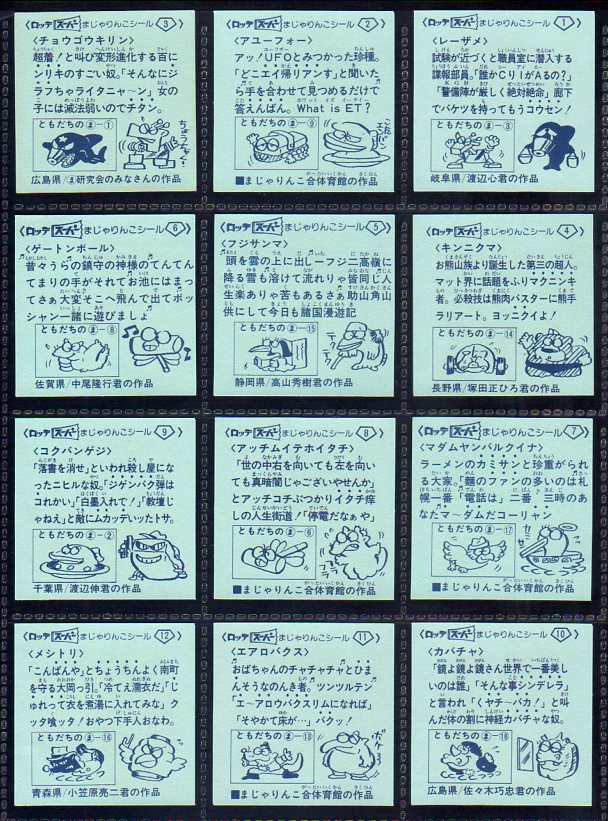 ロッテ スーパー まじゃりんこシール 3
〈チョウゴウキリン〉
超着！と叫び変形進化する百に
ンリキのすごい奴。「そんなにジ
ラフちゃライタニャ〜ン」女の
子には滅法弱いのでチタン。
ともだちのま−1
ちょうちゃく！
広島県/ま研究会のみなさんの作品
ロッテ スーパー まじゃりんこシール 2
〈アユーフォー〉
アッ！UFOとみつかった珍種。
「どこエイ帰リアンす」と聞いた
ら手を合わせて見つめるだけで
答えんばん。What is ET？
ともだちのま−9
■まじゃりんこ合体育館の作品
ロッテ スーパー まじゃりんこシール 1
〈レーザメ〉
試験が近づくと職員室に潜入する
諜報部員。「誰かCrIがAるの？」
「警備陣が厳しく絶対絶命」廊下
でバケツを持ってもうコウセン。
ともだちのま−3
岐阜県/渡辺心君の作品
ロッテ スーパー まじゃりんこシール 6
〈ゲートンボール〉
昔々うらの鎮守の神様のてんてん
てまりの手がそれてお池にはまっ
てさぁ大変そこへ飛んで出てボッ
シャン一諸に遊びましょ
ともだちのま−8
佐賀県/中尾隆行君の作品
ロッテ スーパー まじゃりんこシール 5
〈フジサンマ〉
頭を雲の上に出し一フジ二高嶺に
降る雪も溶けて流れりゃ皆同じ人
生楽ありゃ苦もあるさぁ助山角山
供にして今日も諸国漫遊記
ともだちのま−15
静岡県/高山秀樹君の作品
ロッテ スーパー まじゃりんこシール 4
〈キンニクマ〉
お熊山族より誕生した第三の超人。
マット界に話題をふりマクニンキ
者。必殺技は熊肉バスターに熊手
ラリアート。ヨッニクイよ！
ともだちのま−14
長野県/塚田正ひろ君の作品
ロッテ スーパー まじゃりんこシール 9
〈コクバンゲジ〉
「落書を消せ」といわれ殺し屋にな
ったニヒルな奴。「シゲンバク弾は
コレかいし「白墨入れで！」「教壇じ
ゃねえ」と敵にムカッデいったトサ。
ともだちのま−2
千葉県/渡辺伸君の作品
ロッテ スーパー まじゃりんこシール 8
〈アッチムイテホイタチ〉
「世の中右を向いても左を向い
ても真暗闇じゃございやせんか」
とアッチコチぶつかりイタチ痒
しの人生街道！「停電だなぁや」
ともだちのま−6
■まじゃりんこ合体育館の作品
ロッテ スーパー まじゃりんこシール 7
〈マダムヤンバルクイナ〉
ラーメンのカミサンと珍重がられ
る大家。「麺のファンの多いのは札
幌一番「電話は」二番 三時のあ
なたマ〜ダムだコーリャン
ともだちのま−17
■まじゃりんこ合体育館の作品
ロッテ スーパー まじゃりんこシール 12
〈メシトリ〉
「こんばんや」とちょうちんよく南町
を守る大岡っ引。「冷てえ濡衣だ」「じ
ゅれって衣を煮湯に入れてみな」ク
ック喰ッケ！おやつ下手人おなわ。
ともだちのま−16
青森県/小笠原亮二君の作品
ロッテ スーパー まじゃりんこシール 11
〈エアロバクス〉
おばちゃんのチャチャチャとひま
んそうなのんき者。ツンツルテン
「エ〜アロウバクスリムになれば」
「そやかて床が…」バクッ！
ともだちのま−13
■まじゃりんこ合体育館の作品
ロッテ スーパー まじゃりんこシール 10
〈カバチャ〉
「鏡よ鏡よ鏡さん世界で一番美し
いのは誰」「そんな事シンデレラ」
と言われ「くヤチ〜バカ！」と叫
んだ体の割に神経カバチャな奴。
ともだちのま−18
広島県/佐々木巧忠君の作品